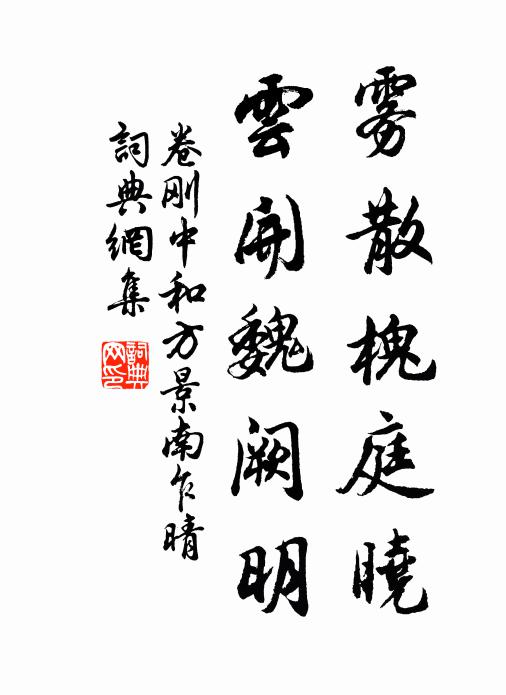 雾散槐庭曉
雲開魏阙明
卷刚中和方景南乍晴
詞典網集
詞典網印